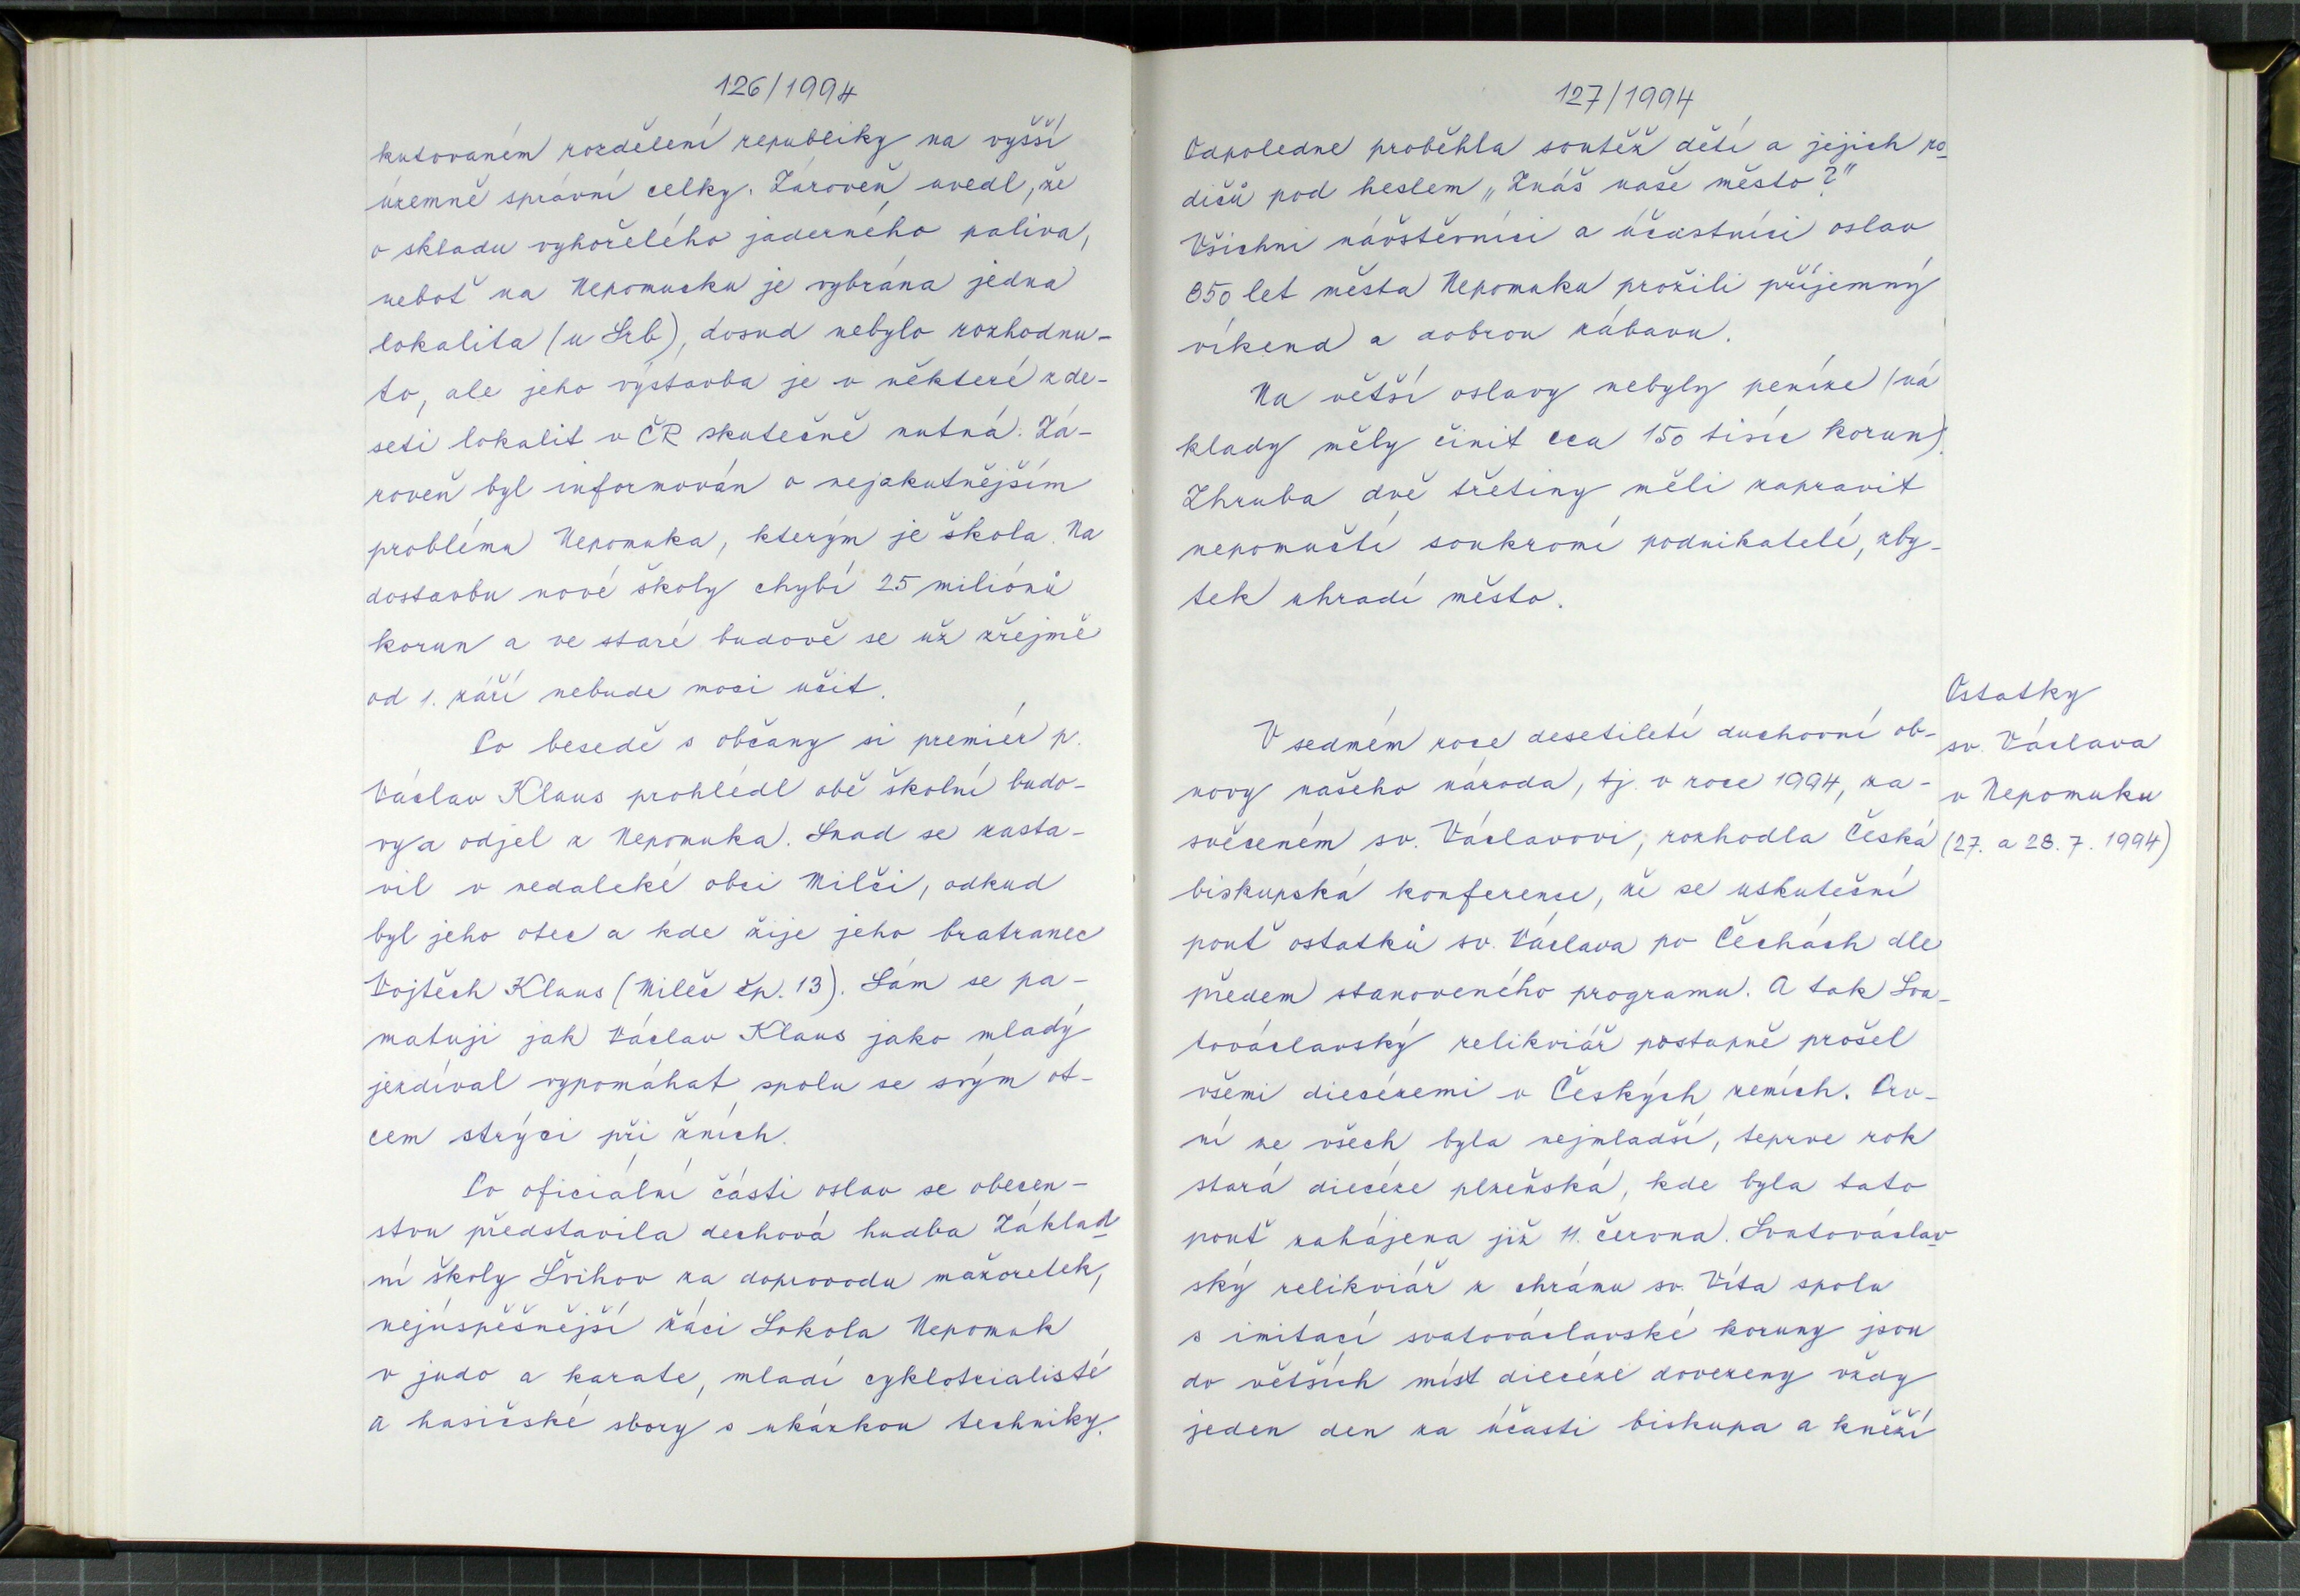 126/1994
kutovaném rozdělení republiky na vyšší
územně správní celky. Zároveň uvedl, že
o skladu vyhořelého jaderného paliva,
neboť na Nepomucku je vybrána jedna
lokalita (u Srb), dosud nebylo rozhodnu-
to, ale jeho výstavba je v některé z de-
seti lokalit v ČR skutečně nutná. Zá-
roveň byl informován o nejakutnějším
problému Nepomuka, kterým je škola. Na
dostavbu nové školy chybí 25 miliónů
korun a ve staré budově se už zřejmě
od 1. září nebude moci učit.
Po besedě s občany si premiér p.
Václav Klaus prohlédl obě školní budo-
vy a odjel z Nepomuka. Snad se zasta-
vil v nedaleké obci Milči, odkud
byl jeho otec a kde žije jeho bratranec
Vojtěch Klaus (Mileč čp. 13). Sám se pa-
matuji jak Václav Klaus jako mladý
jezdíval vypomáhat spolu se svým ot-
cem strýci při žních.
Po oficiální části oslav se obecen-
stvu představila dechová hudba Základ-
ní školy Švihov za doprovodu mažoretek,
nejúspěšnější žáci Sokola Nepomuk
v judo a karate, mladí cyklotrialisté
a hasičské sbory s ukázkou techniky.
127/1994
Odpoledne proběhla soutěž dětí a jejich ro-
dičů pod heslem „Znáš naše město?"
Všichni návštěvníci a účastníci oslav
850 let města Nepomuka prožili příjemný
víkend a dobrou zábavu.
Na větší oslavy nebyly peníze (ná
klady měly činit cca 150 tisíc korun).
Zhruba dvě třetiny měli zapravit
nepomučtí soukromí podnikatelé, zby-
tek uhradí město.
Ostatky
sv. Václava
v Nepomuku
(27. a 28. 7. 1994)
V sedmém roce desetiletí duchovní ob-
novy našeho národa, tj. v roce 1994, za-
svěceném sv. Václavovi, rozhodla Česká
biskupská konference, že se uskuteční
pouť ostatků sv. Václava po Čechách dle
předem stanoveného programu. A tak Sva-
továclavský relikviář postupně prošel
všemi diecézemi v Českých zemích. Prv-
ní ze všech byla nejmladší, teprve rok
stará diecéze plzeňská, kde byla tato
pouť zahájena již 11. června. Svatováclav-
ský relikviář z chrámu sv. Víta spolu
s imitací svatováclavské koruny jsou
do větších míst diecéze dovezeny vždy
jeden den za účasti biskupa a kněží